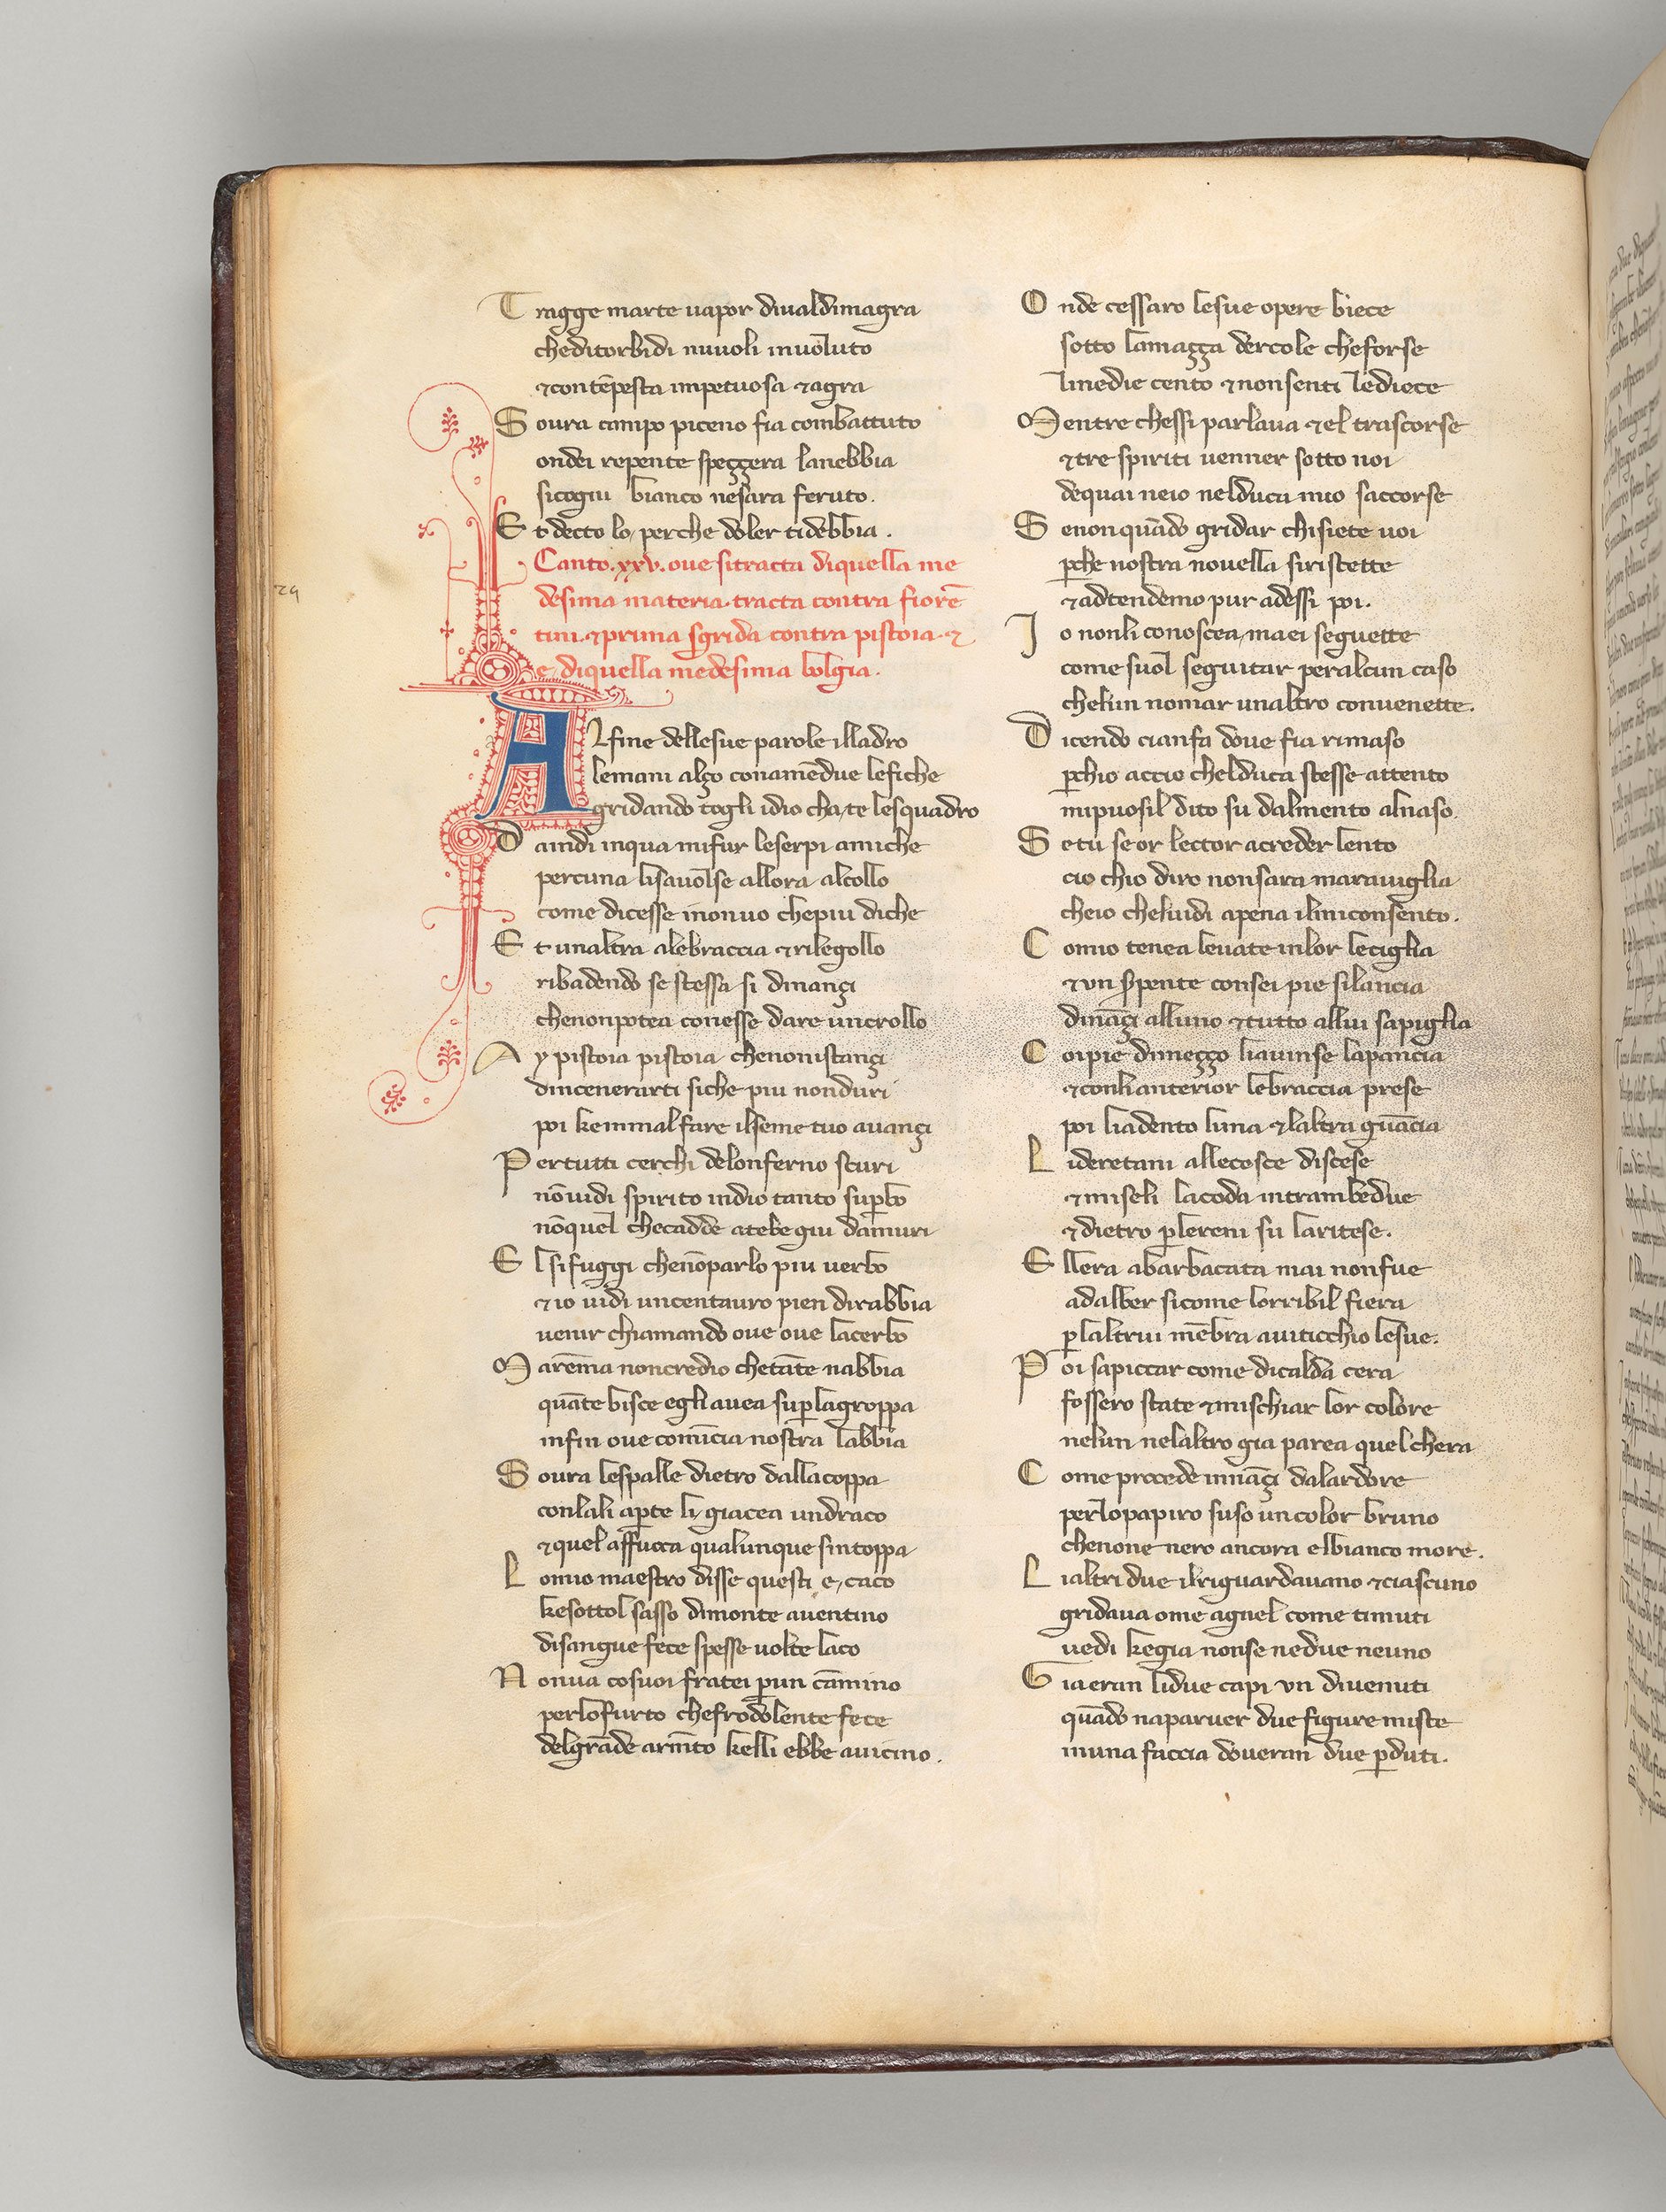 Tragge marte uapor diualdimagra
cheditorbidi nuuoli inuoluto
⁊contēpesta impetuosa ⁊agra
Soura campo piceno fia combattuto
ondei repente speççera lanebbia
sicogni bianco nesara feruto.
Et decto lo perche doler tidebbia.
Canto.xxv.oue sitracta diquella me
desima materia.tracta contra fiorē
tini.⁊prima sgrida contra pistoia.⁊
e diquella medesima bolgia.
Alfine dellesue parole illadro
lemani alço conamēdue lefiche
gridando togli idio cha te lesquadro
Daindi inqua mifur leserpi amiche
percuna lisauolse allora alcollo
come dicesse inonuo chepiu diche
Et unaltra alebraccia ⁊rilegollo
ribadendo se stessa si dinançi
chenonpotea conesse dare uncrollo
Ay pistoia pistoia chenonistançi
dincenerarti siche piu nonduri
poi kemmalfare ilseme tuo auançi
Pertutti cerchi delonferno scuri
nōuidi spirito indio tanto supbo
nōquel checadde atebe giu damuri
El sifuggi chenōparlo piu uerbo
⁊io uidi uncentauro pien dirabbia
uenir chiamando oue oue lacerbo
Marēma noncredio chetāte nabbia
quāte bisce egli auea suplagroppa
infin oue comīcia nostra labbia
Soura lespalle dietro dallacoppa
conlali apte li giacea undraco
⁊quel affuoca qualunque sintoppa
Lomio maestro disse questi e caco
kesottol sasso dimonte auentino
disangue fece spesse uolte laco
Nonua cosuoi fratei pun cāmino
perlofurto chefrodolente fece
delgrāde armīto kelli ebbe auicino.
Onde cessaro lesue opere biece
sotto lamaçça dercole cheforse
linedie cento ⁊nonsenti lediece
Mentre chessi parlaua ⁊el trascorse
⁊tre spiriti uenner sotto noi
dequai neio nelduca mio saccorse
Senonquādo gridar chisiete uoi
pche nostra nouella siristette
⁊adtendemo pur adessi poi.
Io nonli conoscea maei seguette
come suol seguitar peralcun caso
chelun nomar unaltro conuenette.
Dicendo cianfa doue fia rimaso
pchio accio chelduca stesse attento
mipuosil dito su dalmento alnaso.
Setu seor lector acreder lento
cio chio diro nonsara marauiglia
cheio cheluidi apena ilmiconsento.
Comio tenea leuate inlor leciglia
⁊vn spente consei pie silancia
dināçi alluno ⁊tutto allui sapiglia
Coipie dimeçço liauinse lapancia
⁊conlianterior lebraccia prese
poi liadento luna ⁊laltra guācia
Lideretani allecosce discese
⁊miseli lacoda intrambedue
⁊dietro plereni su laritese.
Ellera abarbacata mai nonfue
adalber sicome lorribil fiera
plaltrui mēbra auiticchio lesue.
Poi sapiccar come dicalda cera
fossero state ⁊mischiar lor colore
nelun nelaltro gia parea quel chera
Come procede innāçi dalardore
perlopapiro suso un color bruno
chenone nero ancora elbianco more.
Lialtri due ilriguardauano ⁊ciascuno
gridaua ome agnel come timuti
uedi kegia nonse nedue neuno
Giaeran lidue capi vn diuenuti
quādo naparuer due figure miste
inuna faccia doueran due pduti.